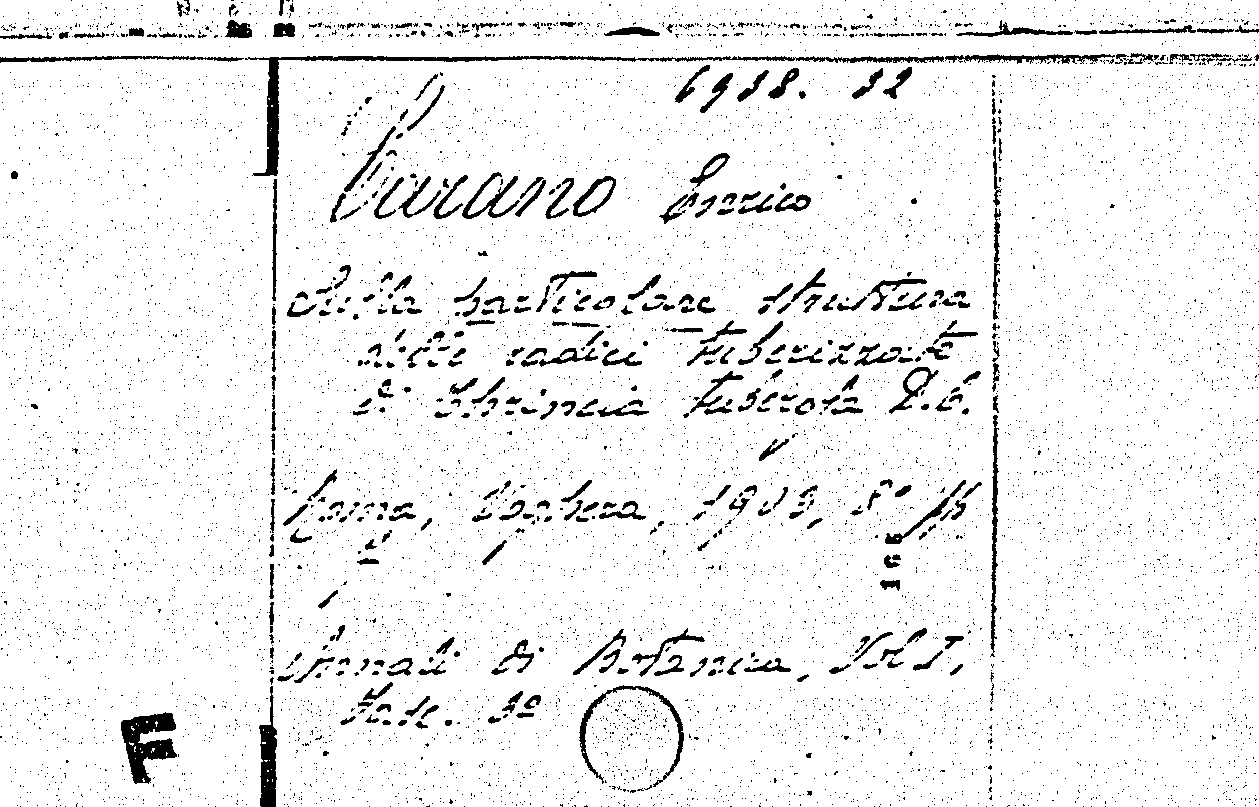 6938. 32
Carano Enrico
Sulla particolare struttura
delle radici tuberizzate
di Thrincia tuberosa D.C.
Roma, Voghera, 1903, 8º
Annali di Botanica, Vol I,
Fasc. 3º
F